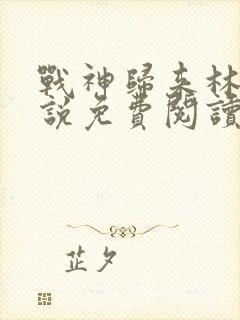 戰神歸來林
說免費閱讀
芷夕